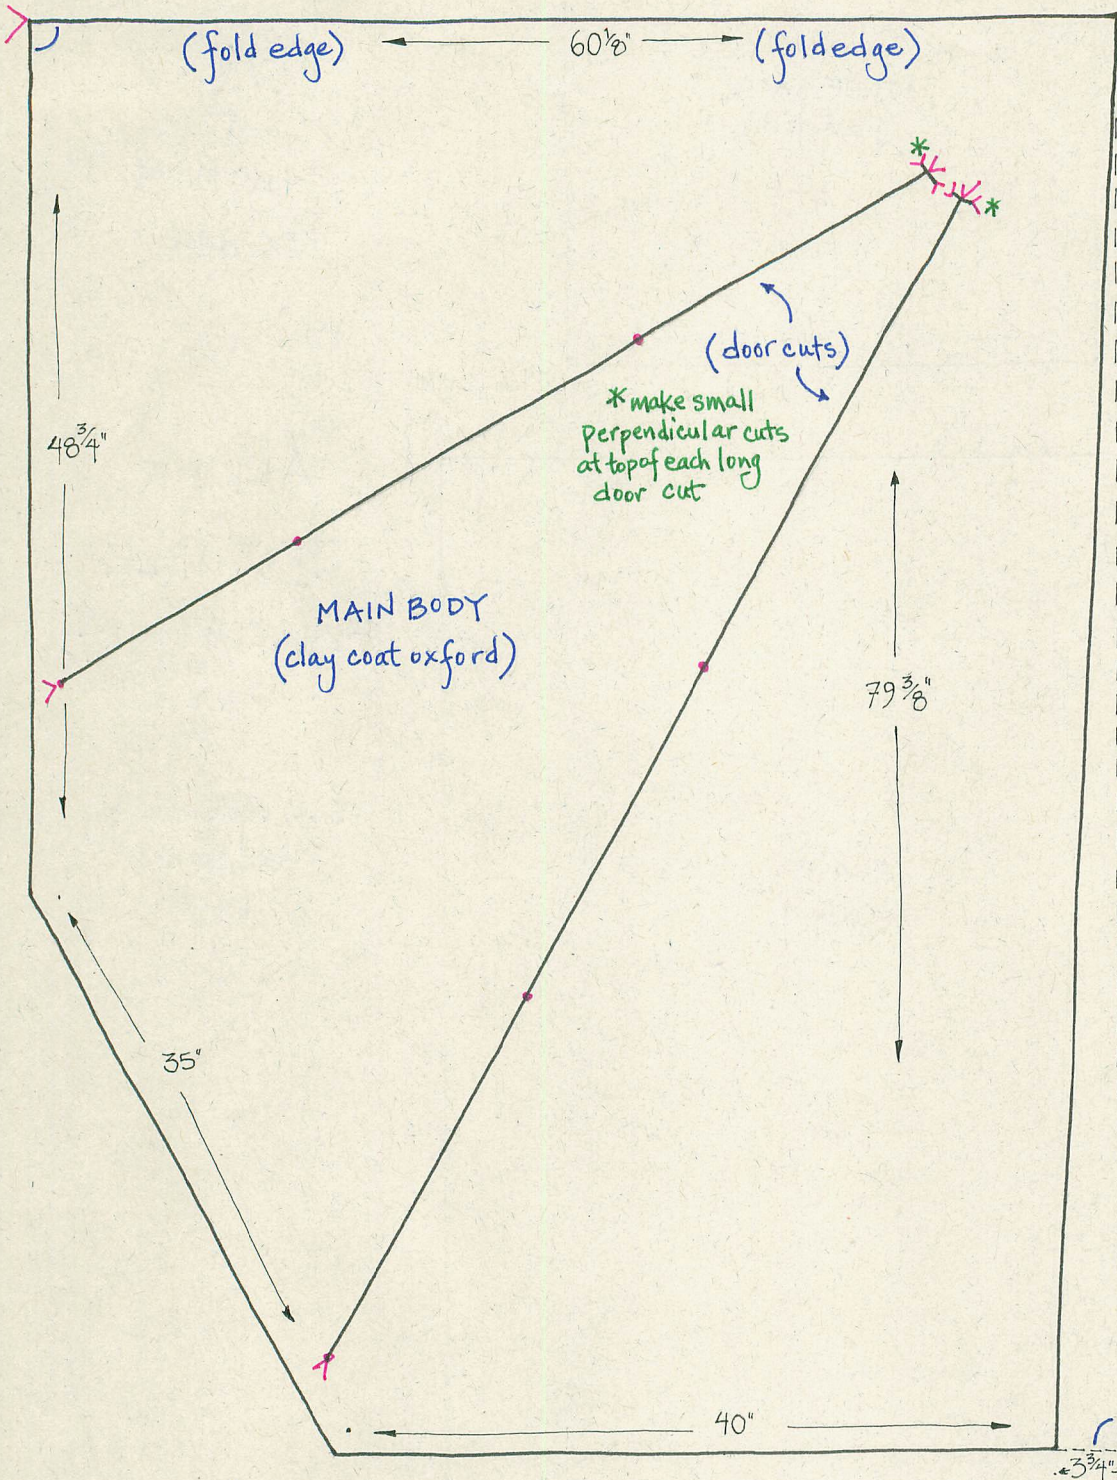 (fold edge) 60 1/8" (fold edge)
48 3/4"
(door cuts)
*
*
*make small
perpendicular cuts
at top of each long
door cut
MAIN BODY
(clay coat oxford)
79 3/8"
35"
40"
3 3/4"